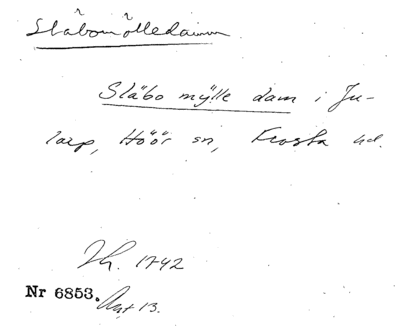 Slåbomölledamm
Släbo mÿlle dam i Ju-
larp, Höör sn, Frosta hd.
1742
Nr 6853. 13.